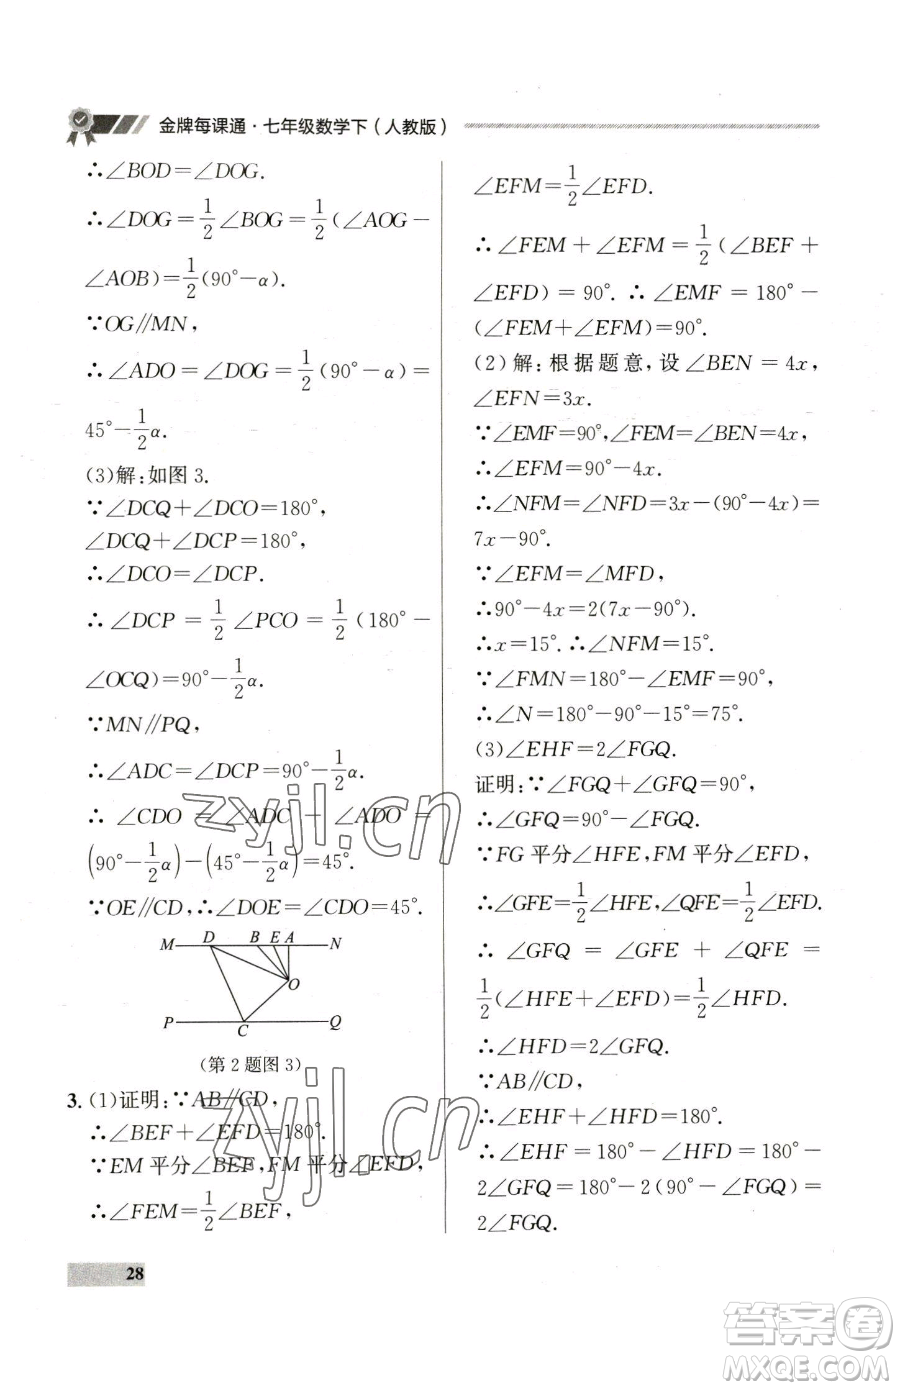 金牌每课通·七年级数学下(人教版)
∴∠BOD=∠DOG.
∴∠DOG=1/2∠BOG=1/2(∠AOG-
∠AOB)=1/2(90°-α).
∵OG∥MN,
∴∠ADO=∠DOG=1/2(90°-α)=
45°-1/2α.
(3)解:如图3.
∵∠DCQ+∠DCO=180°,
∠DCQ+∠DCP=180°,
∴∠DCO=∠DCP.
∴∠DCP=1/2∠PCO=1/2(180°-
∠OCQ)=90°-1/2α.
∵MN∥PQ,
∴∠ADC=∠DCP=90°-1/2α.
∴∠CDO=∠ADC-∠ADO=
(90°-1/2α)-(45°-1/2α)=45°.
∵OE∥CD,∴∠DOE=∠CDO=45°.
M D B E A N
O
P C Q
(第2题图3)
3.(1)证明:∵AB∥CD,
∴∠BEF+∠EFD=180°.
∵EM平分∠BEF,FM平分∠EFD,
∴∠FEM=1/2∠BEF,
∠EFM=1/2∠EFD.
∴∠FEM+∠EFM=1/2(∠BEF+
∠EFD)=90°.∴∠EMF=180°-
(∠FEM+∠EFM)=90°.
(2)解:根据题意,设∠BEN=4x,
∠EFN=3x.
∵∠EMF=90°,∠FEM=∠BEN=4x,
∴∠EFM=90°-4x.
∴∠NFM=∠NFD=3x-(90°-4x)=
7x-90°.
∵∠EFM=∠MFD,
∴90°-4x=2(7x-90°).
∴x=15°.∴∠NFM=15°.
∵∠FMN=180°-∠EMF=90°,
∴∠N=180°-90°-15°=75°.
(3)∠EHF=2∠FGQ.
证明:∵∠FGQ+∠GFQ=90°,
∴∠GFQ=90°-∠FGQ.
∵FG平分∠HFE,FM平分∠EFD,
∴∠GFE=1/2∠HFE,∠QFE=1/2∠EFD.
∴∠GFQ=∠GFE+∠QFE=
1/2(∠HFE+∠EFD)=1/2∠HFD.
∴∠HFD=2∠GFQ.
∵AB∥CD,
∴∠EHF+∠HFD=180°.
∴∠EHF=180°-∠HFD=180°-
2∠GFQ=180°-2(90°-∠FGQ)=
2∠FGQ.
28
zyjl.cn
zyjl.cn
答案圈
MXQE.COM